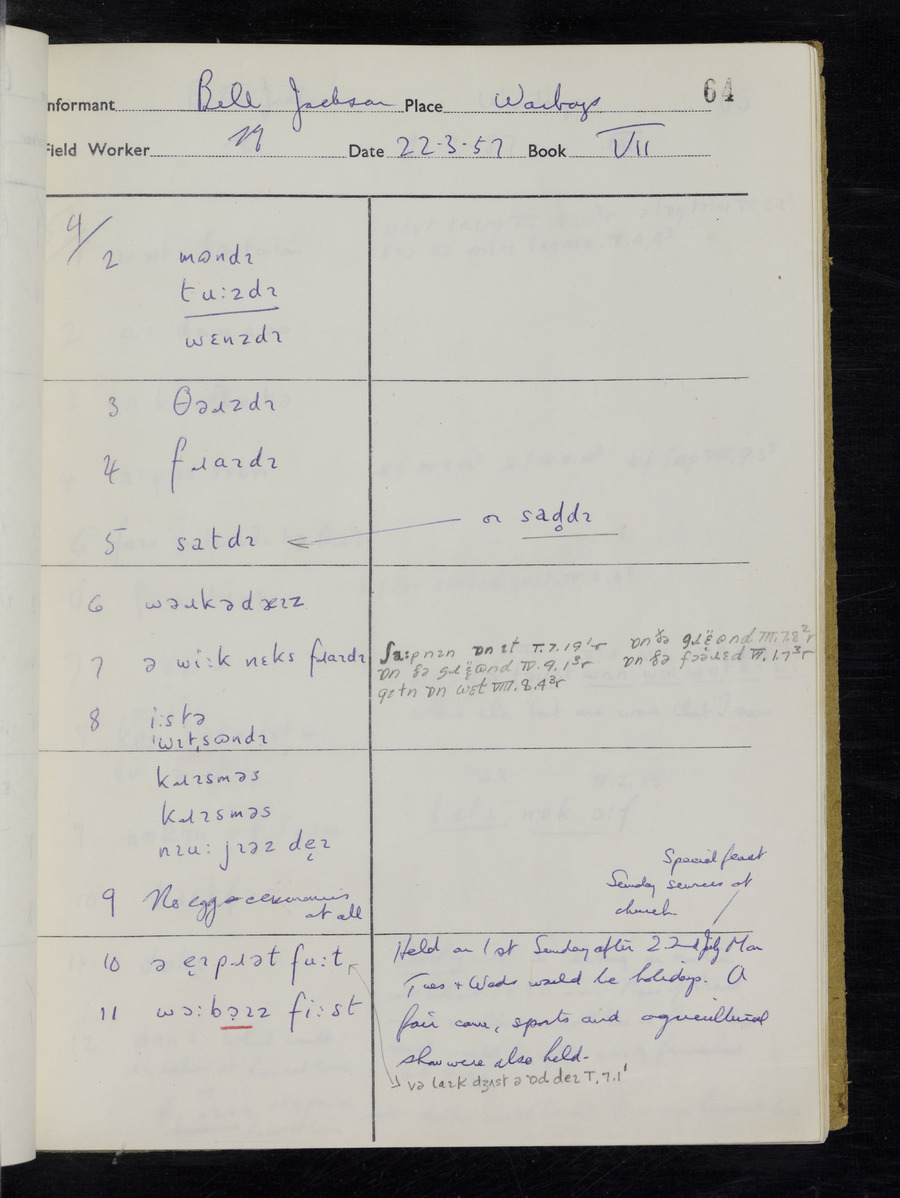 64
Informant Bill Jackson Place Warboys
Field Worker N Date 22-3-57 Book VII
4/
2 mɷndɪ
tu:zdɪ
wɛnzdɪ
3 θəɹzdɪ
4 fɹaɪdɪ
5 satdɪ or sad̥dɪ
6 wəɹkədæɪz
7 ə wi:k nɛks fɹaɪdɪ
ʃa:pnɪn ɒn ɪt I.7.19¹r ɒn ðə gɹë̝ɷnd III.7.8²r
ɒn ðə gɹë̝ɷnd IV.9.1³r ɒn ðə fəəɹɛd VI.1.7³r
gɛtn ɒn wɛt VIII.8.4³r
8 i:stə
ˈwɪtˌsɷndɪ
kɹɪsməs
kɹɪsməs
nɪu: jɪəz de̞ɪ
9 No egg ceremonies
at all
Special feast
Sunday services at
church
10 ə e̞ɪpɹət fu:t
11 wɔ:bə̞ɪz fi:st
Held on 1st Sunday after 22nd July Mon
Tues + Weds would be holidays. A
fair came, sports and agricultural
show were also held.
və laɪk dʒɪst ə ɒd deɪ I.7.1¹